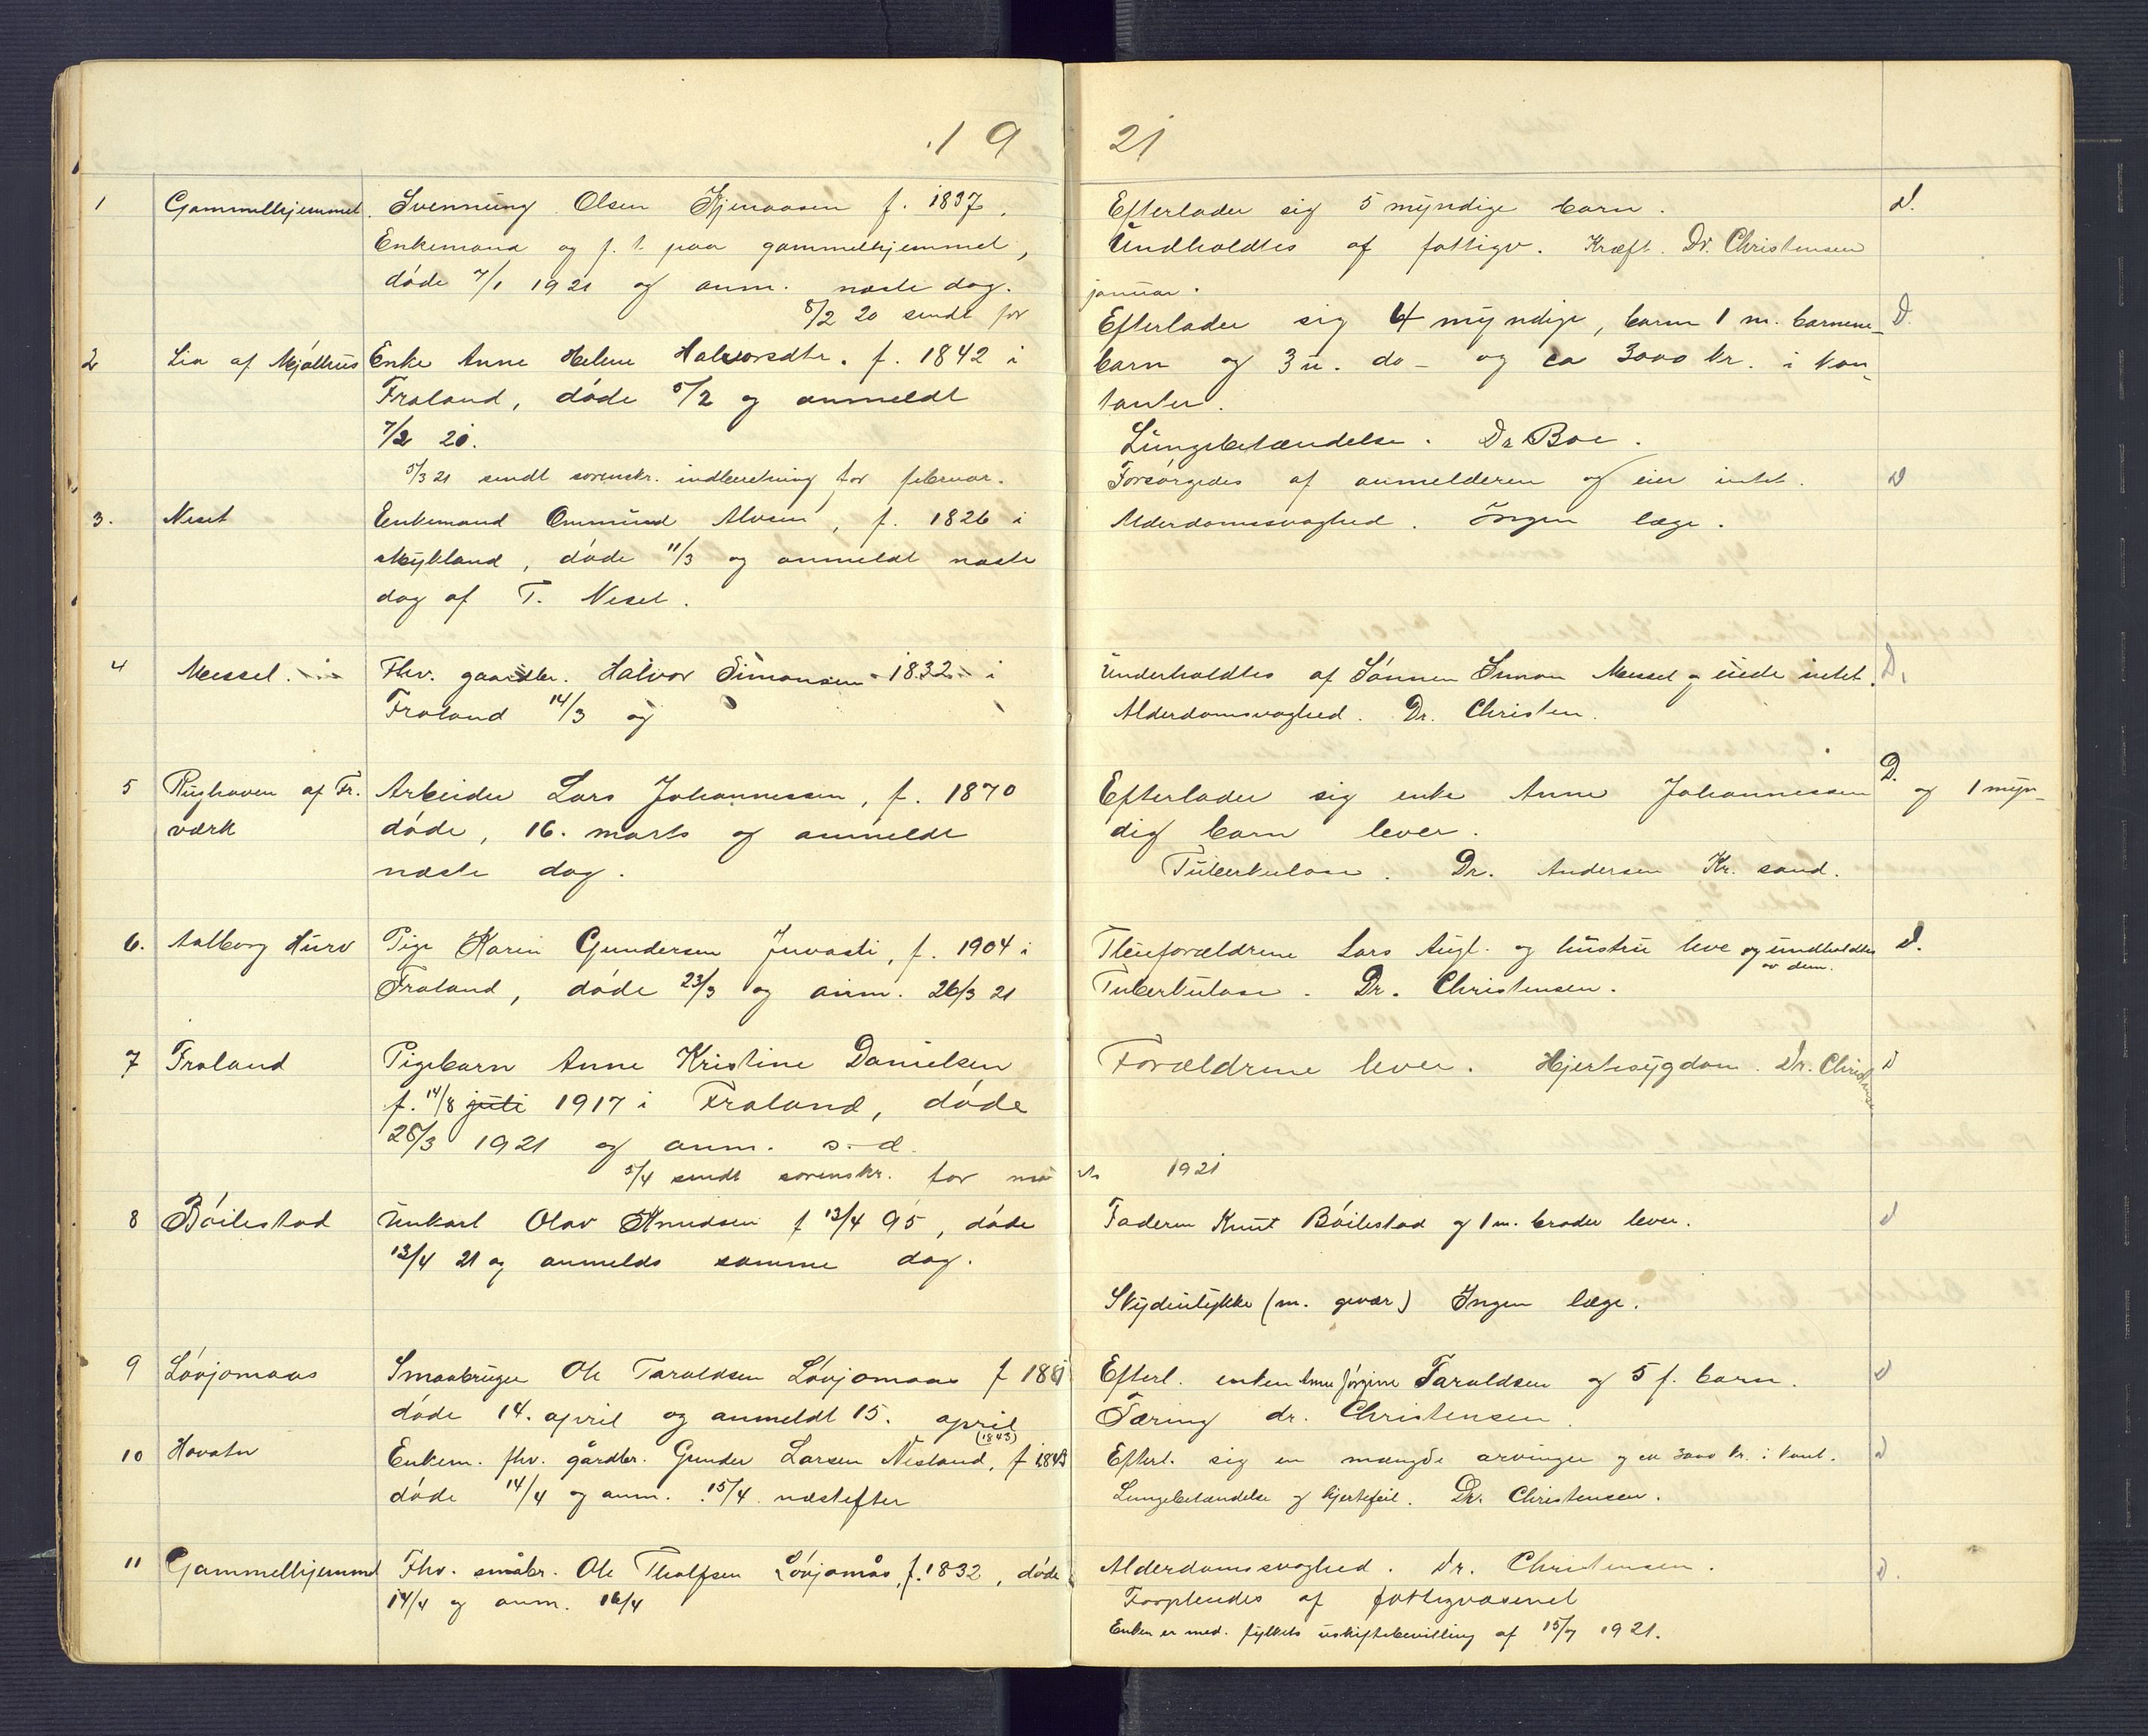 19 21
1 Gammelhjemmet. Svennung Olsen Kjenaasen f. 1837.
Enkemand og f. t. paa gammelhjemmet,
døde 7/1 1921 og anm. næste dag.
8/2 20 sendt for
januar.
Efterlader sig 5 myndige barn. d.
Undholdtes af fattigv. Kræft. Dr. Christensen
2 Lia af Mjølhus Enke Anne Helene Halvorsdtr. f. 1842 i
Froland, døde 5/2 og anmeldt
7/2 20.
Efterlader sig 4 myndige, barn 1 m. barne- D.
barn og 3 u. do - og ca 3000 kr. i kon-
tanter.
Lungebetændelse. Dr Boe.
5/3 21 sendt sorenskr. indberetning for februar.
3. Neset Enkemand Ommund Alvsen, f. 1826 i
Mykland, døde 11/3 og anmeldt næste
dag af T. Neset.
Forsørgedes af anmelderen og eier intet. D
Alderdomssvaghed. Ingen læge.
4 Messel. Fhv. gaardbr. Halvor Simonsen 1832 i
Froland 14/3 og
Underholdtes af Sønnen Simon Messel og eiede intet. D.
Alderdomsvaghed. Dr. Christen.
5 Rughaven af Fr. Arbeider Lars Johannessen, f. 1870
værk døde, 16. marts og anmeldt
næste dag.
Efterlader sig enke Anne Johannessen D. og 1 myn-
dig barn lever.
Tuberkulose. Dr. Andersen Kr. sand.
6. Aalborg Hurv Pige Karin Gundersen Juvasli, f. 1904 i
Froland, døde 23/3 og anm. 26/3 21
Pleieforældrene Lars Augl. og hustru leve og undholdtes d.
av dem.
Tuberkulose. Dr. Christensen.
7 Froland Pigebarn Anne Kristine Danielsen
f. 14/8 juli 1917 i Froland, døde
28/3 1921 og anm. s. d.
Forældrene lever. Hjertesygdom. Dr. Christensen D
5/4 sendt sorenskr. for marts 1921
8 Bøilestad Unkarl Olav Knudsen f 13/4 95, døde
13/4 21 og anmelds samme dag.
Faderen Knut Bøilestad og 1 m. broder lever. d
Skydeulykke (m. gevær) Ingen læge.
9 Løvjomaas Smaabruger Ole Taraldsen Løvjomaas f 1881
døde 14. april og anmeldt 15. april
Efterl. enken Anne Jørgine Taraldsen og 5 f. barn. d
Tæring dr. Christensen.
10 Hovatn Enkem. fhv. gårdbr. Gunder Larsen Nesland, f 1843 (1843)
døde 14/4 og anm. 15/4 næstefter
Efterl. sig en mængde arvinger og ca 3000 kr. i kont. d
Lungebetændelse og hjertefeil. Dr. Christensen.
11 Gammelhjemmet Fhv. småbr. Ole Tholfsen Løvjomås, f. 1832, døde
14/4 og anm. 16/4
Alderdomssvaghed. Dr. Christensen. D.
Forpleiedes af fattigvæsenet
Enken er med. fylkets uskiftebevilling af 15/7 1921.